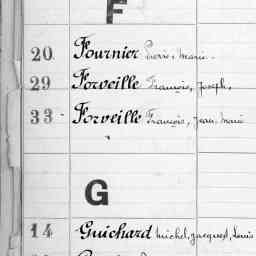 F
20. Fournier Pierre, Marie.
29 Forveille François, Joseph,
33 Forveille François, Jean Marie
G
14 Guichard michel, jacques, Louis